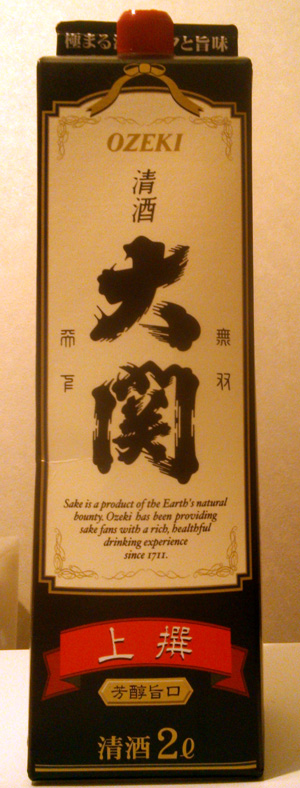 極まる
と旨味
OZEKI
清酒
大関
天下
無双
Sake is a product of the Earth's natural
bounty. Ozeki has been providing
sake fans with a rich, healthful
drinking experience
since 1711.
上撰
芳醇旨口
清酒2ℓ